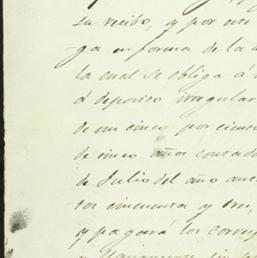 su recibo, y por me
ga en forma de la
la cual se obliga á
á deposito irregular
de un cinco por cien
de cinco años contad
de Julio del año
tos cincuenta y tres
y pagará los